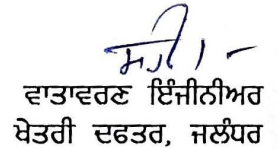 ਸਹੀ/-
ਵਾਤਾਵਰਣ ਇੰਜੀਨੀਅਰ
ਖੇਤਰੀ ਦਫਤਰ, ਜਲੰਧਰ